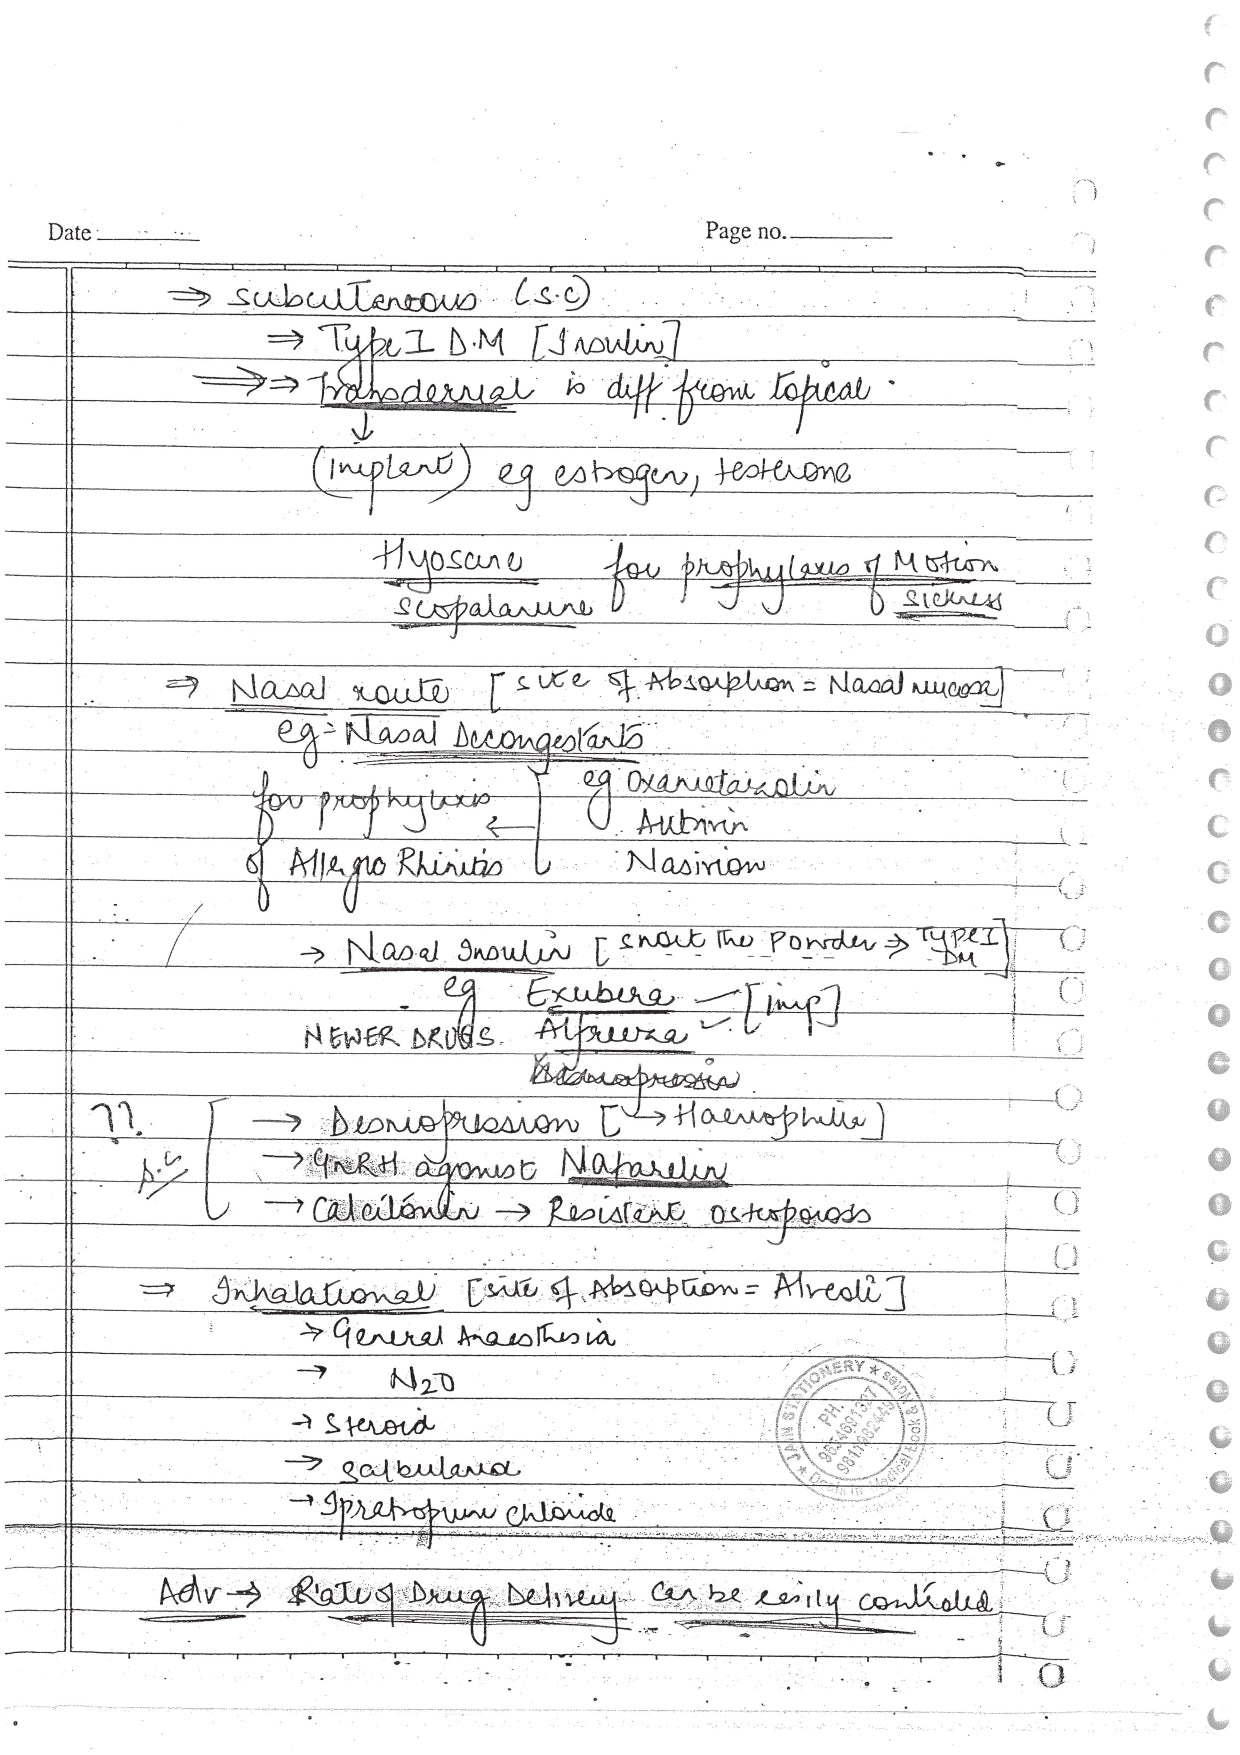 Date
Page no.
⇒ subcultaneous (S.C)
⇒ Type I D.M [Insulin]
⇒⇒ Transdermal is diff from topical.
↓
(implant) eg estrogen, testerone
Hyosine for prophylaxis of Motion
scopalamine sickness
⇒ Nasal route [site of Absorption = Nasal mucosa]
eg = Nasal Decongestants
for prophylaxis ← eg Oxametazolin
Autrivin
of Allergo Rhinitis Nasivion
→ Nasal Insulin [snort the Powder ⇒ Type I DM]
eg Exubera – [imp]
NEWER DRUGS. Alfreeza
Desmopressin
??. → Desmopression [→ Haemophilia]
→ GnRH agonist Nafarelin
→ Calcitonin → Resistent osteoporosis
⇒ Inhalational [site of Absorption = Alveoli]
→ General Anaesthesia
→ N2O
→ Steroid
→ salbutamol
→ Ipratropium chloride
JAIN STATIONERY ★
PH.
Adv → Rate of Drug Delivery can be easily controlled